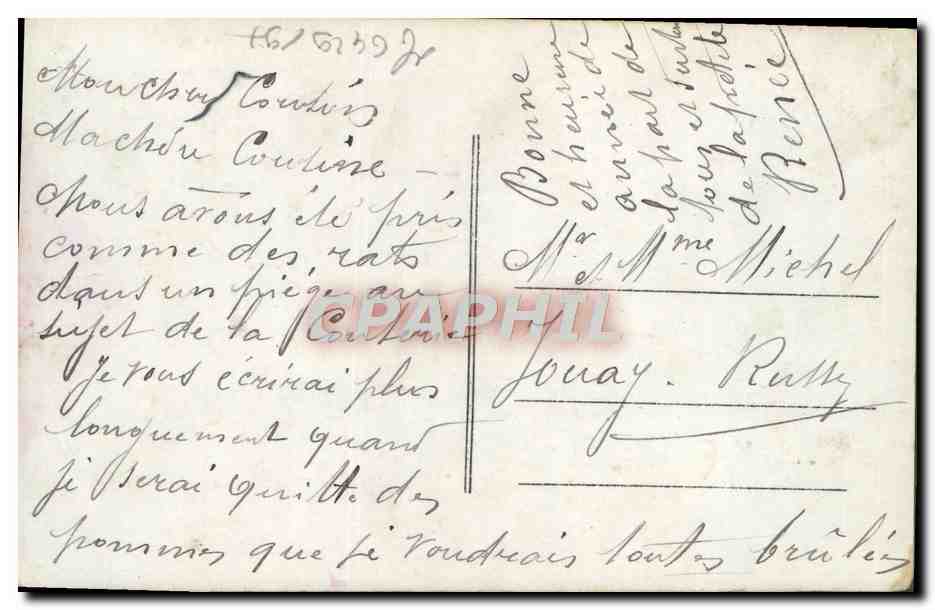 Mon cher Cousin
Ma chére Cousine
Nous avons été pris
comme des rats
dans un piége au
sujet de la
Je vous écrirai plus
longuement quand
je serai quitte des
pommes que je voudrais toutes brûlées
Bonne
et heureuse
année de
la part de
tous et surtout
de la petite
Renée
Mr et Mme Michel
Jouay. Russy
CPAPHIL